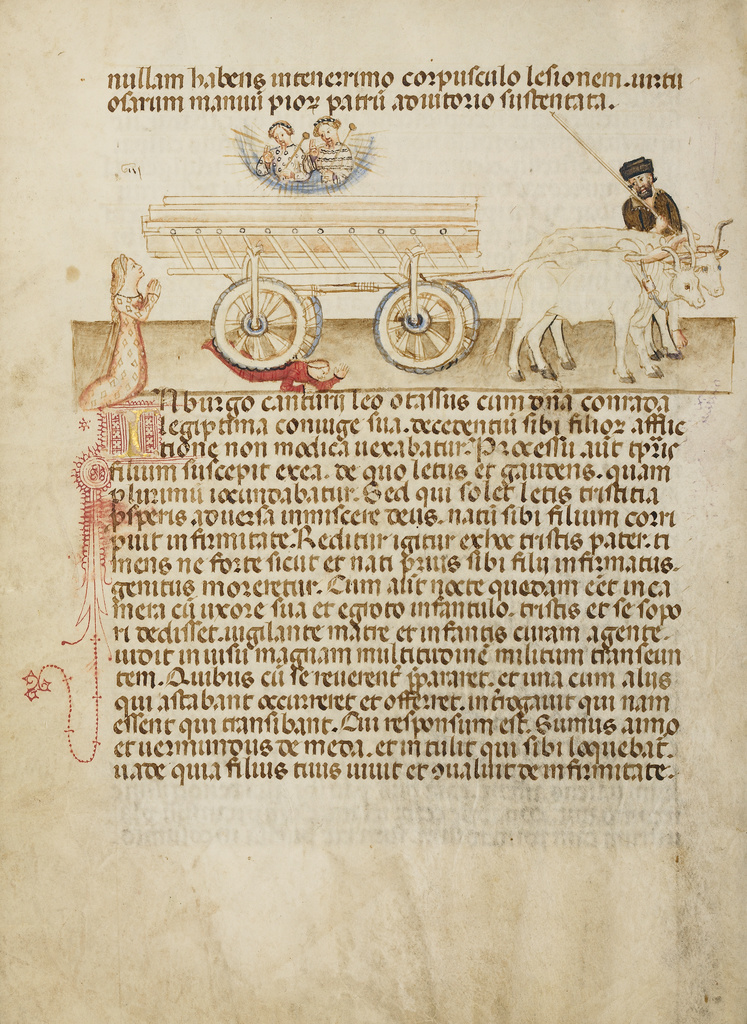 nullam habens in tenerrimo corpusculo lesionem. uirtu
osarum manuũ pioꝝ patrũ adiutorio sustentata.
IN burgo canturij leo otassus cum dña conrada
legiptima coniuge sua. decedentiũ sibi filioꝝ afflic
tione non modica uexabatur. Processu aũt tp̃ris
filium suscepit ex ea. de quo letus et gaudens. quam
plurimũ iocundabatur. Sed qui solet letis tristitia
ꝓsperis aduersa inmiscere deus. natũ sibi filium corri
puit infirmitate. Redditur igitur ex hoc tristis pater. ti
mens ne forte sicut et nati prius sibi filij infirmatus.
genitus moreretur. Cum aũt nocte quedam eẽt in ca
mera cũ uxore sua et egroto infantulo. tristis et se sopo
ri dedisset. uigilante matre et infantis curam agente.
uidit in uisu magnam multitudinẽ militum transeun
tem. Quibus cũ se reuerent̃ p̃pararet. et una cum alijs
qui astabant occurreret et offerret. int̃rogauit qui nam
essent qui transibant. Cui responsum est. Sumus aimo
et uermundus de meda. et intulit qui sibi loquebat̃.
uade quia filius tuus uiuit et ꝯualuit de infirmitate.